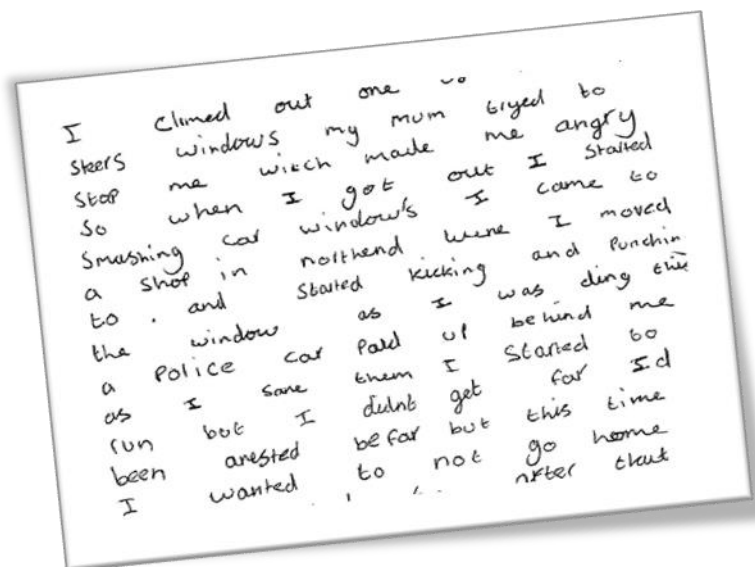 I Climed out one
steers windows my mum tryed to
stop me witch made me angry
So when I got out I started
Smashing car window's I came to
a shop in northend were I moved
to . and started kicking and Punchin
the window as I was ding this
a Police car Pald up behind me
as I sore them I started to
run but I didnt get far I'd
been arested befor but this time
I wanted to not go home
after that